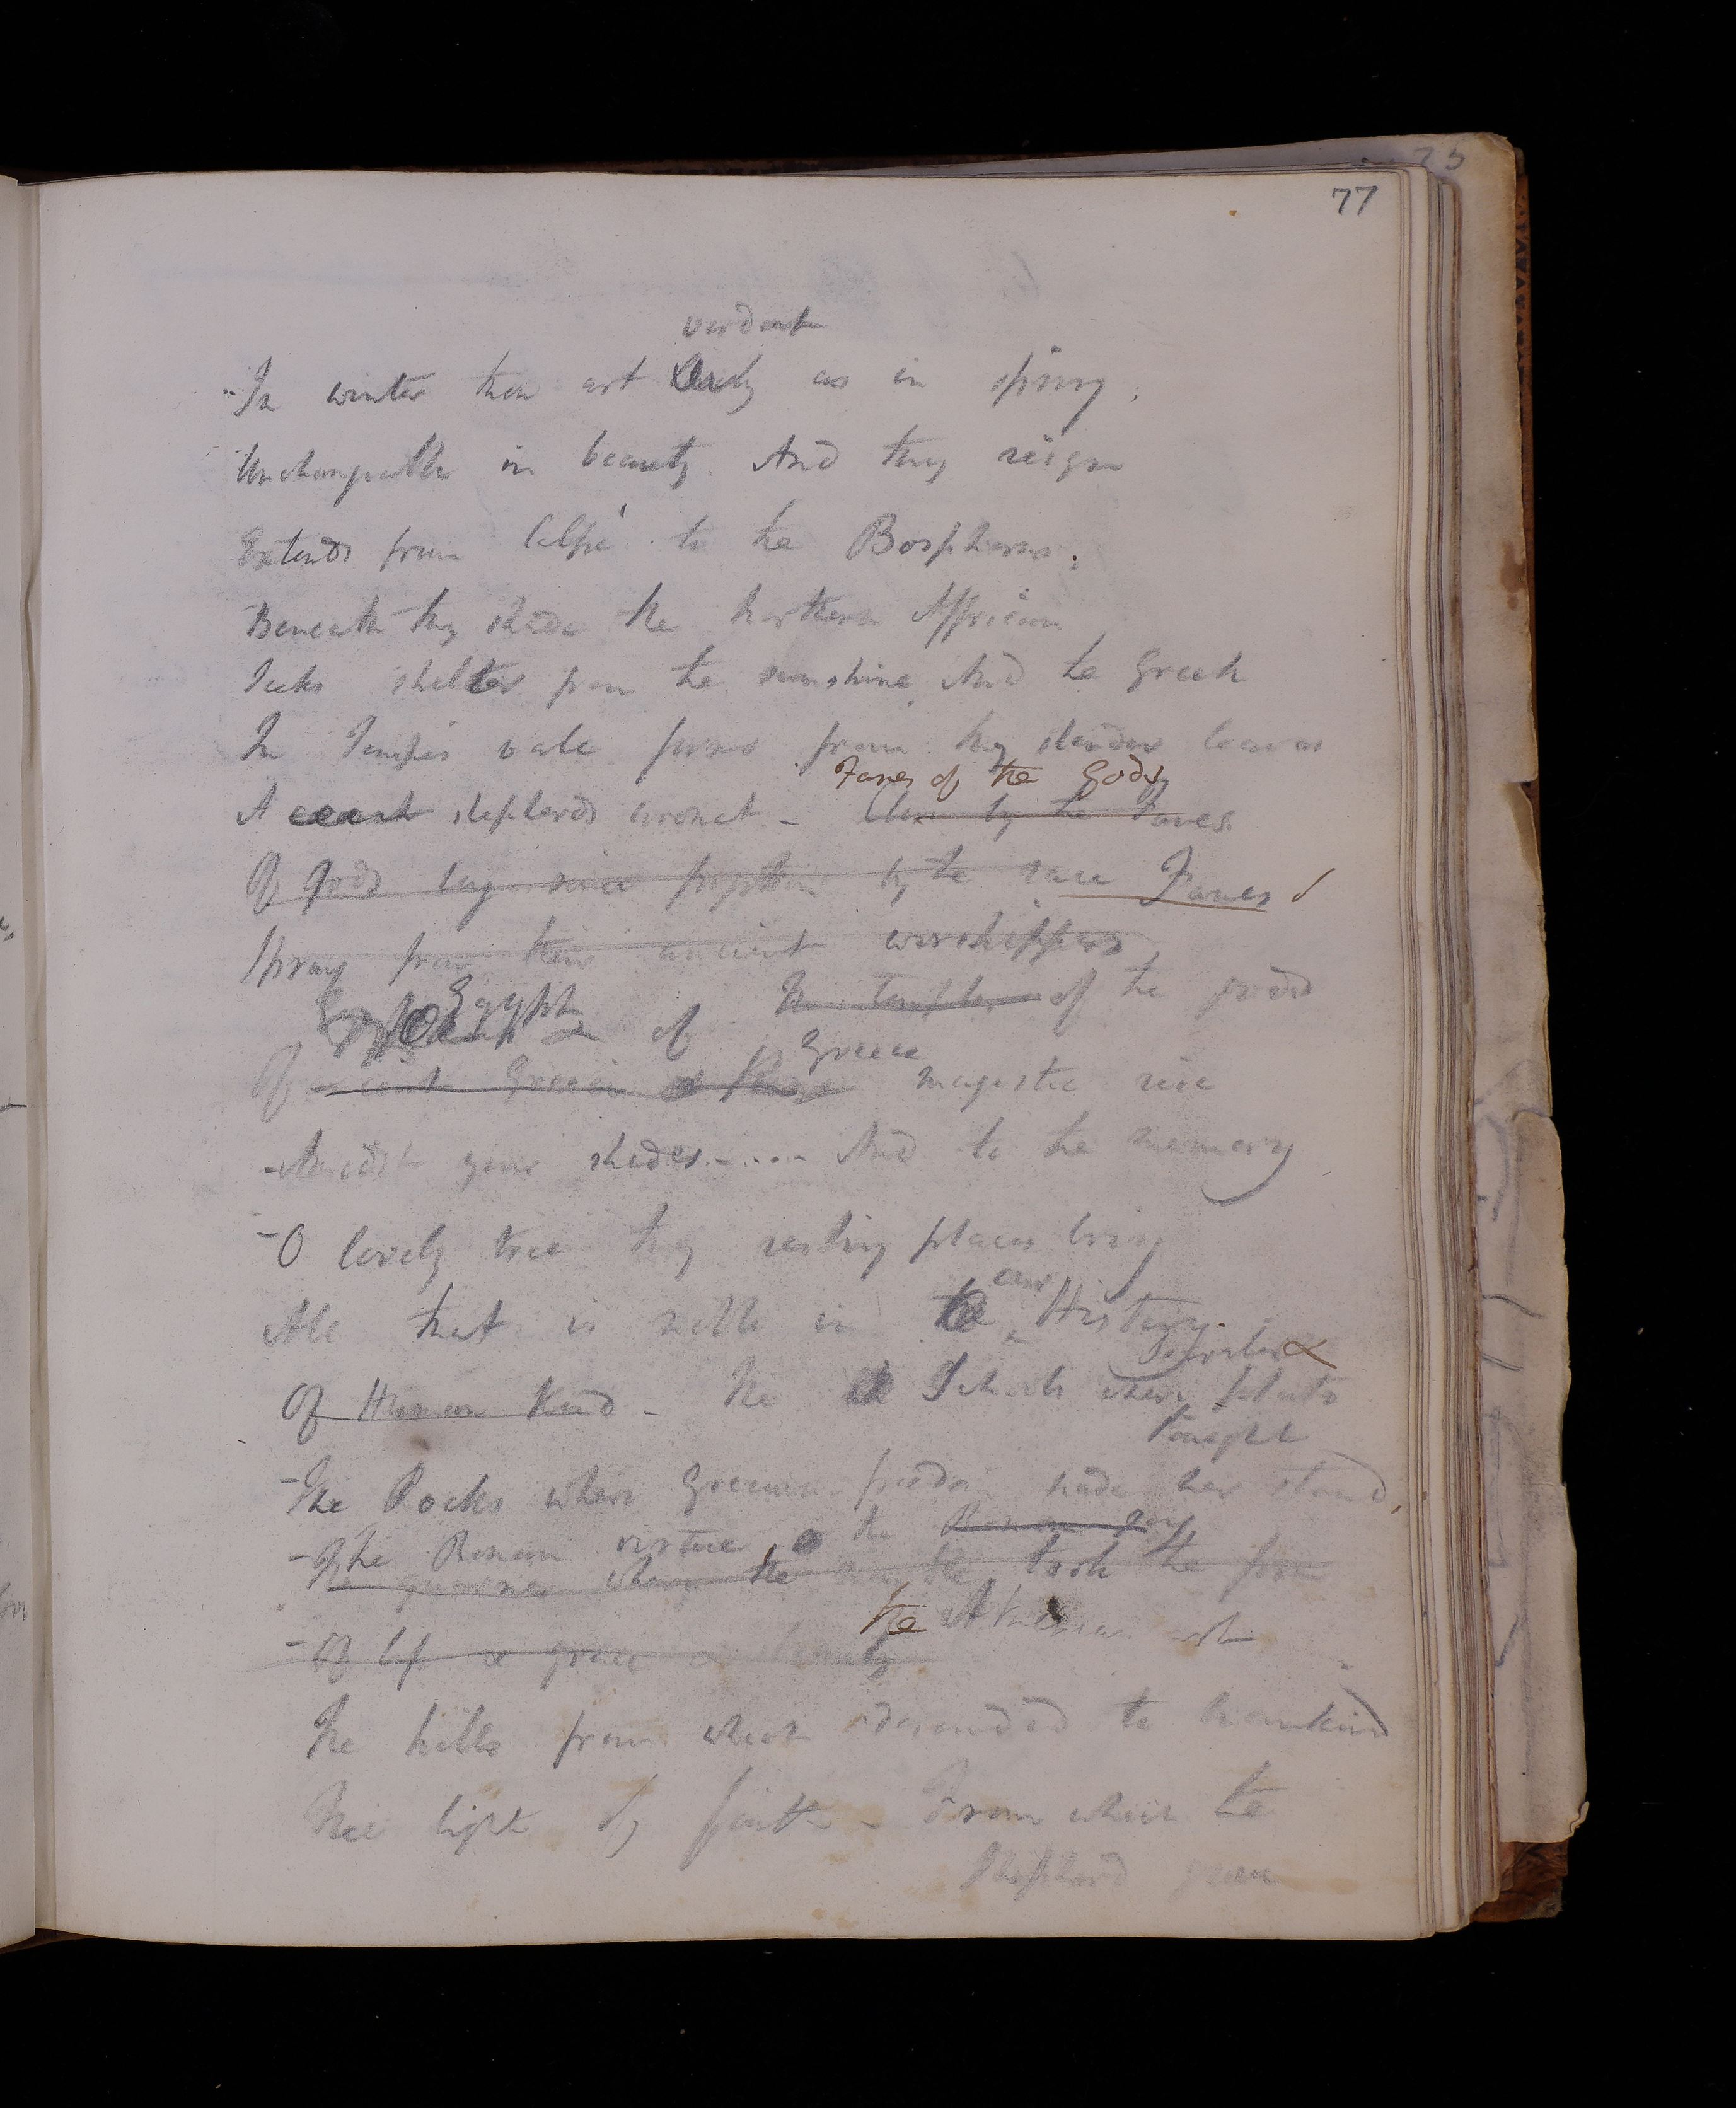 77
verdant
In winter thou art as in spring,
Unchangeable in beauty. And thy reign
Extends from Calpe to the Bosphorus;
Beneath thy shade the northern Affrican
Seeks shelter from the sunshine. And the Greek
In Tempes vale forms from thy slender leaves
Fanes of the Gods
A shepherds coronet - by the Fanes
Of Gods long since forgotten by the race Fanes
Sprung from their ancient worshippers
Egypt & of The Temples of the gods
Greece
Of Grecian & majestic rise
Amidst your shades..... And to the memory
O lovely tree thy resting places bring
our
All that is noble in the History.
Socrates &
Of Human Kind - The Schools where Plato
Taught
The Rocks where Grecian freedom made her stand,
The Roman virtue & the Roman
The quarries where the marble took the form
the Athenian art
Of life & grace & beauty
The hills from which descended to mankind
The light of faith - From which the
Shepherd gave